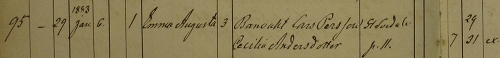 1843 29
95 - 29 Jan. 6. 1 Emma Augusta 3 Lars Persson
Cecilia Andersdotter p. 11. 7 31 ex